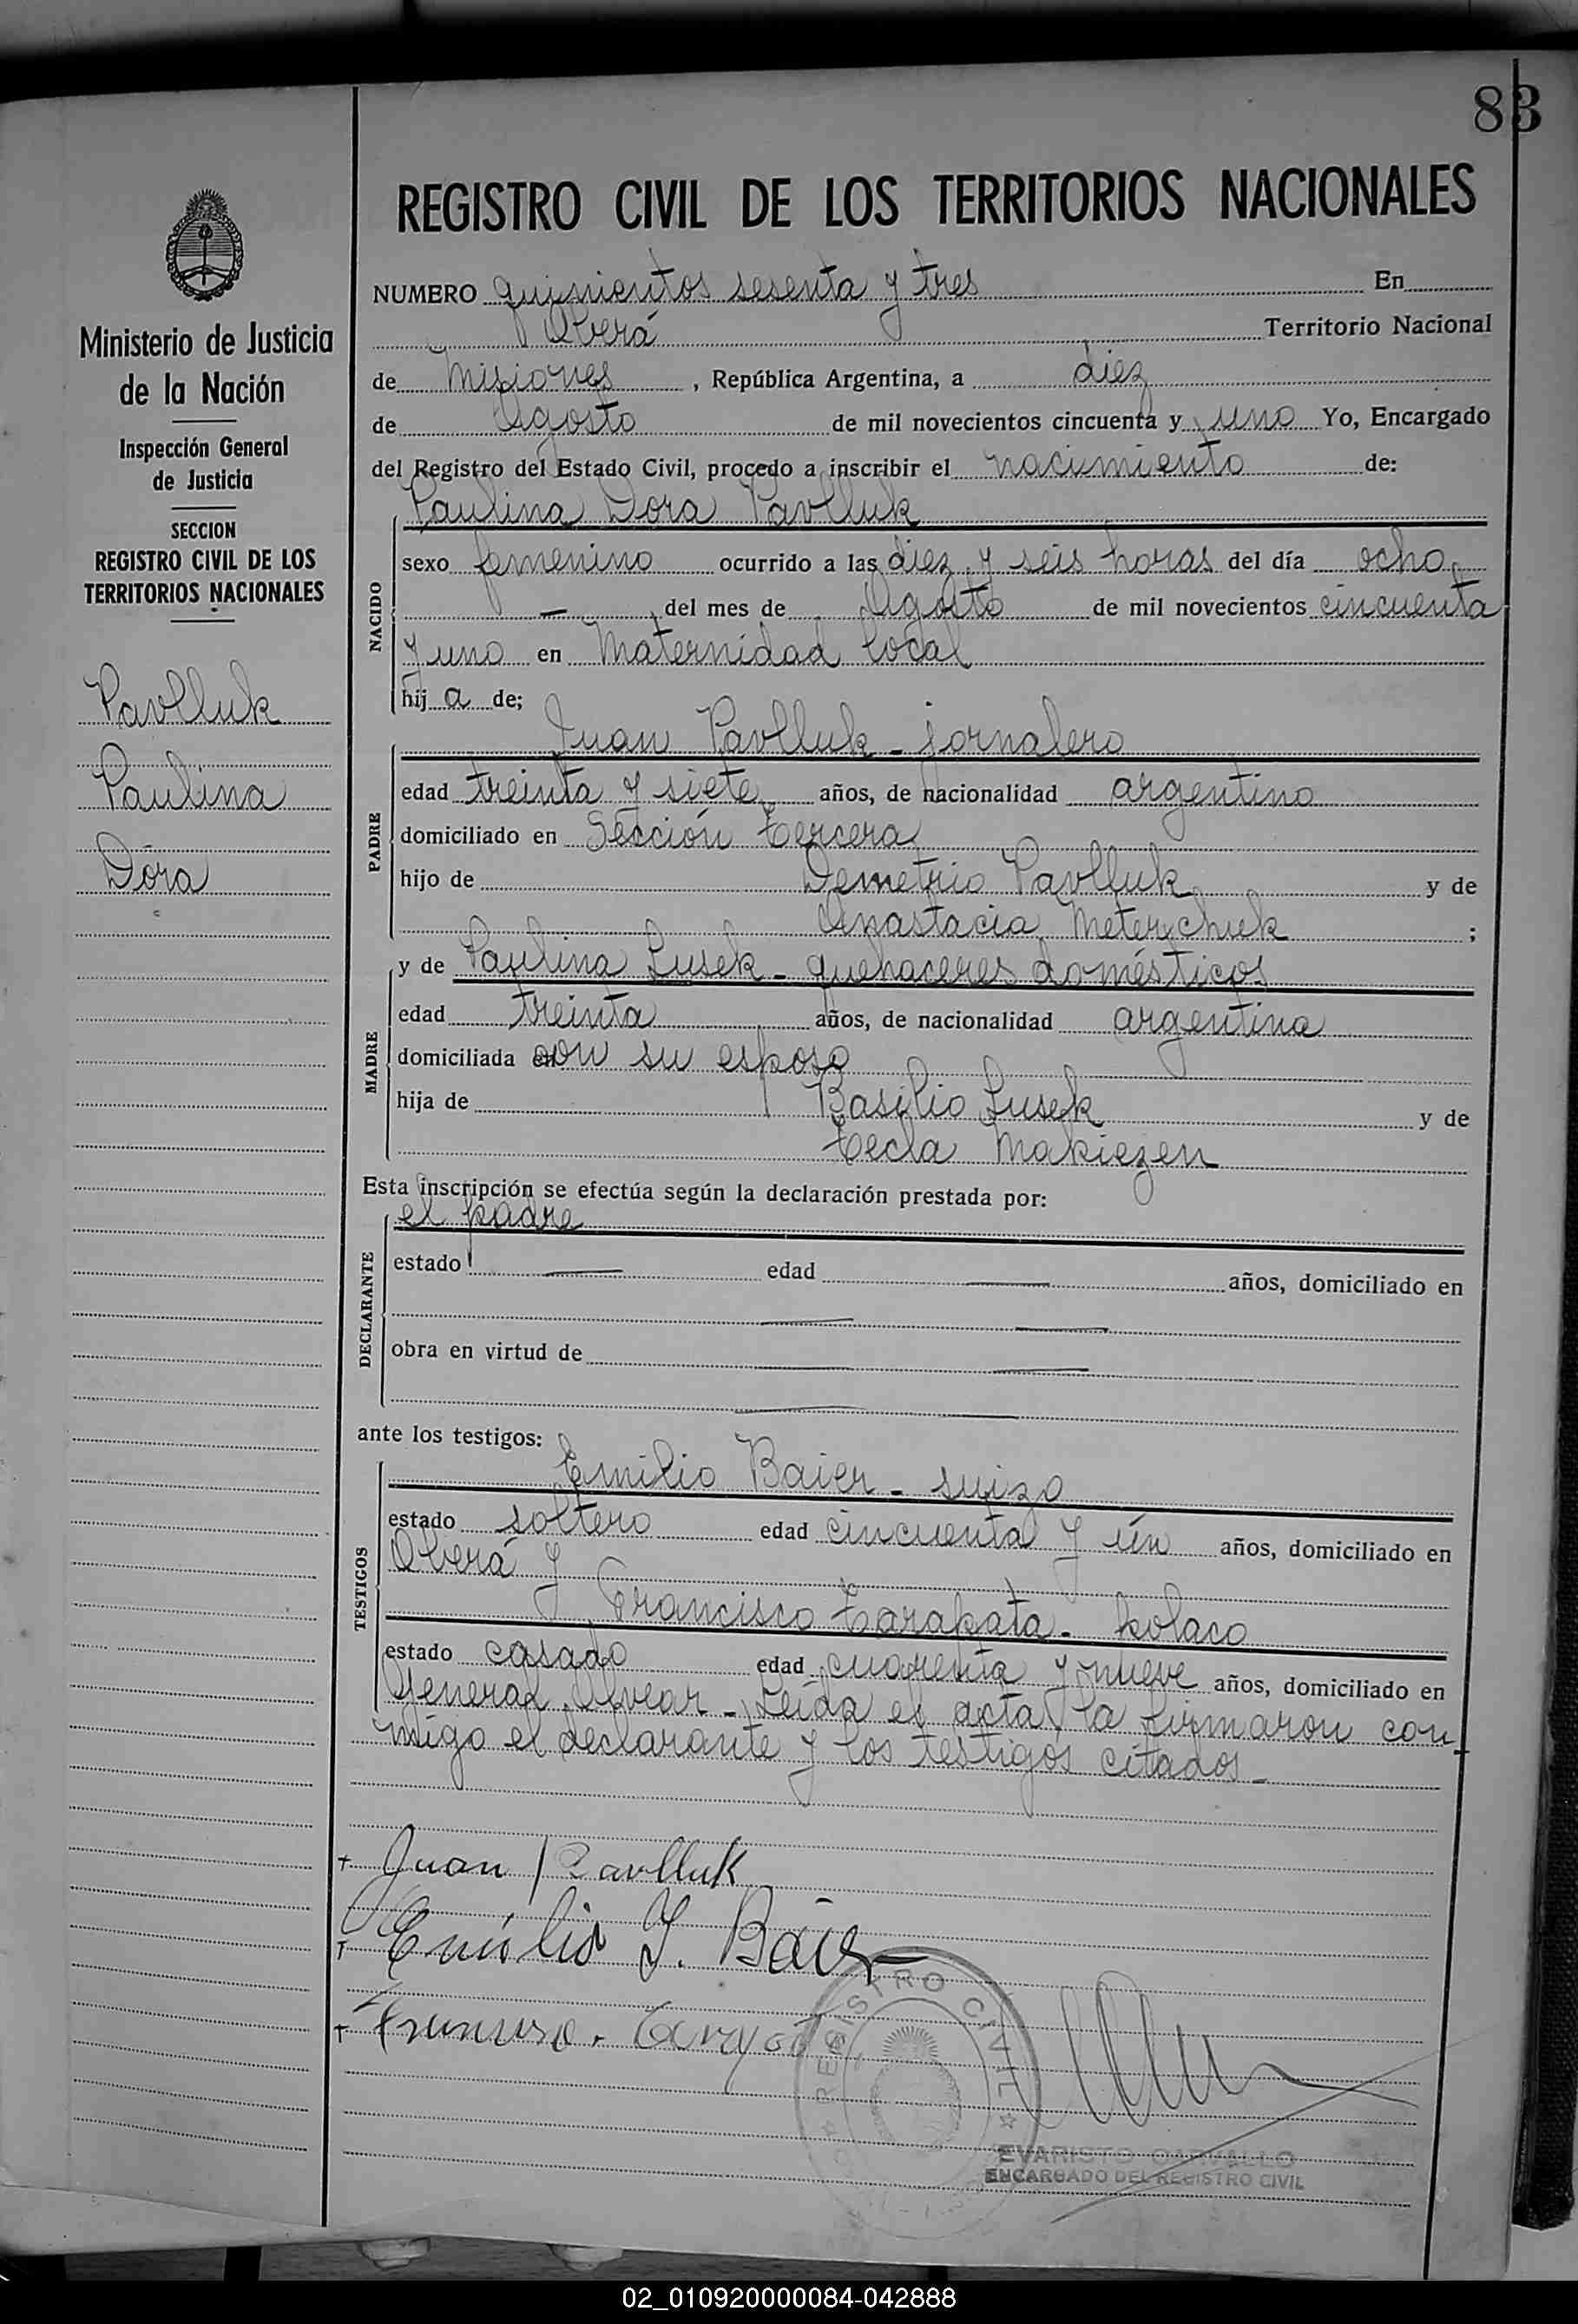 83
REGISTRO CIVIL DE LOS TERRITORIOS NACIONALES
Ministerio de Justicia
de la Nación
Inspección General
de Justicia
SECCION
REGISTRO CIVIL DE LOS
TERRITORIOS NACIONALES
Pavlluk
Paulina
Dora
NUMERO quinientos sesenta y tres En
Oberá Territorio Nacional
de Misiones, República Argentina, a diez
de Agosto de mil novecientos cincuenta y uno Yo, Encargado
del Registro del Estado Civil, procedo a inscribir el nacimiento de:
Paulina Dora Pavlluk
NACIDO
sexo femenino ocurrido a las diez y seis horas del día ocho
— del mes de Agosto de mil novecientos cincuenta
y uno en Maternidad local
hij a de;
Juan Pavlluk - jornalero
PADRE
edad treinta y siete años, de nacionalidad argentino
domiciliado en Sección tercera
hijo de Demetrio Pavlluk y de
Anastacia Meterychuk ;
y de Paulina Lusek - quehaceres domésticos
MADRE
edad treinta años, de nacionalidad argentina
domiciliada con su esposo
hija de Basilio Lusek y de
Tecla Makiezen
Esta inscripción se efectúa según la declaración prestada por:
el padre
DECLARANTE
estado — edad — años, domiciliado en
— —
obra en virtud de — —
— —
ante los testigos:
Emilio Baier - suizo
TESTIGOS
estado soltero edad cincuenta y ún años, domiciliado en
Oberá y
Francisco Tarapata - polaco
estado casado edad cuarenta y nueve años, domiciliado en
General Alvear - Leída el acta, la firmaron con-
migo el declarante y los testigos citados -
+ Juan Pavlluk
+ Emilio J. Baier
+
REGISTRO CIVIL
EVARISTO CARVALLO
ENCARGADO DEL REGISTRO CIVIL
02_010920000084-042888